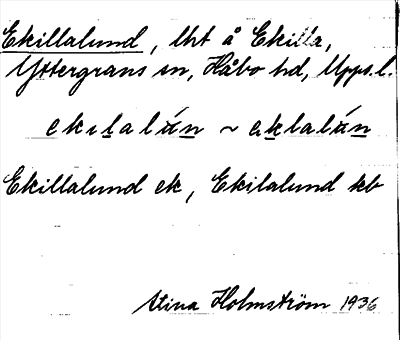 Ekillalund, lht å Ekilla,
Yttergrans sn, Håbo hd, Upps. l.
ekılalún ~ eklalún
Ekillalund ek, Ekilalund kb
Stina Holmström 1936